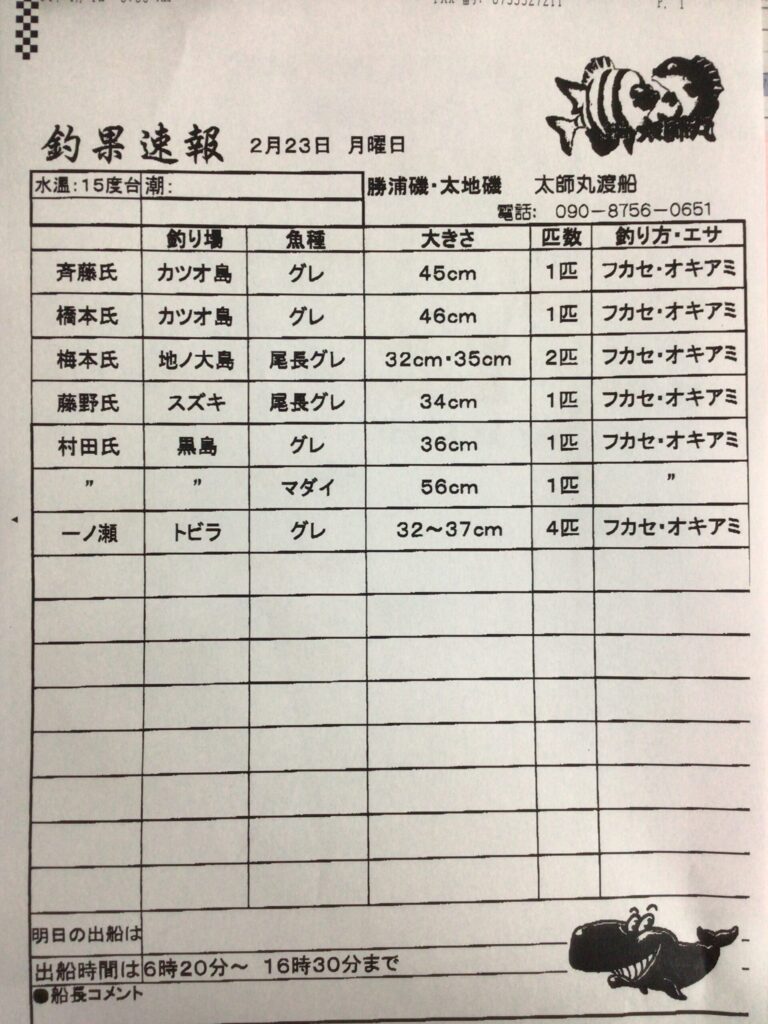 釣果速報 2月23日 月曜日
水温:15度台 潮: 勝浦磯・太地磯 太師丸渡船
電話: 090-8756-0651
釣り場 魚種 大きさ 匹数 釣り方・エサ
斉藤氏 カツオ島 グレ 45cm 1匹 フカセ・オキアミ
橋本氏 カツオ島 グレ 46cm 1匹 フカセ・オキアミ
梅本氏 地ノ大島 尾長グレ 32cm・35cm 2匹 フカセ・オキアミ
藤野氏 スズキ 尾長グレ 34cm 1匹 フカセ・オキアミ
村田氏 黒島 グレ 36cm 1匹 フカセ・オキアミ
〃 〃 マダイ 56cm 1匹 〃
一ノ瀬 トビラ グレ 32〜37cm 4匹 フカセ・オキアミ
明日の出船は
出船時間は6時20分〜 16時30分まで
●船長コメント